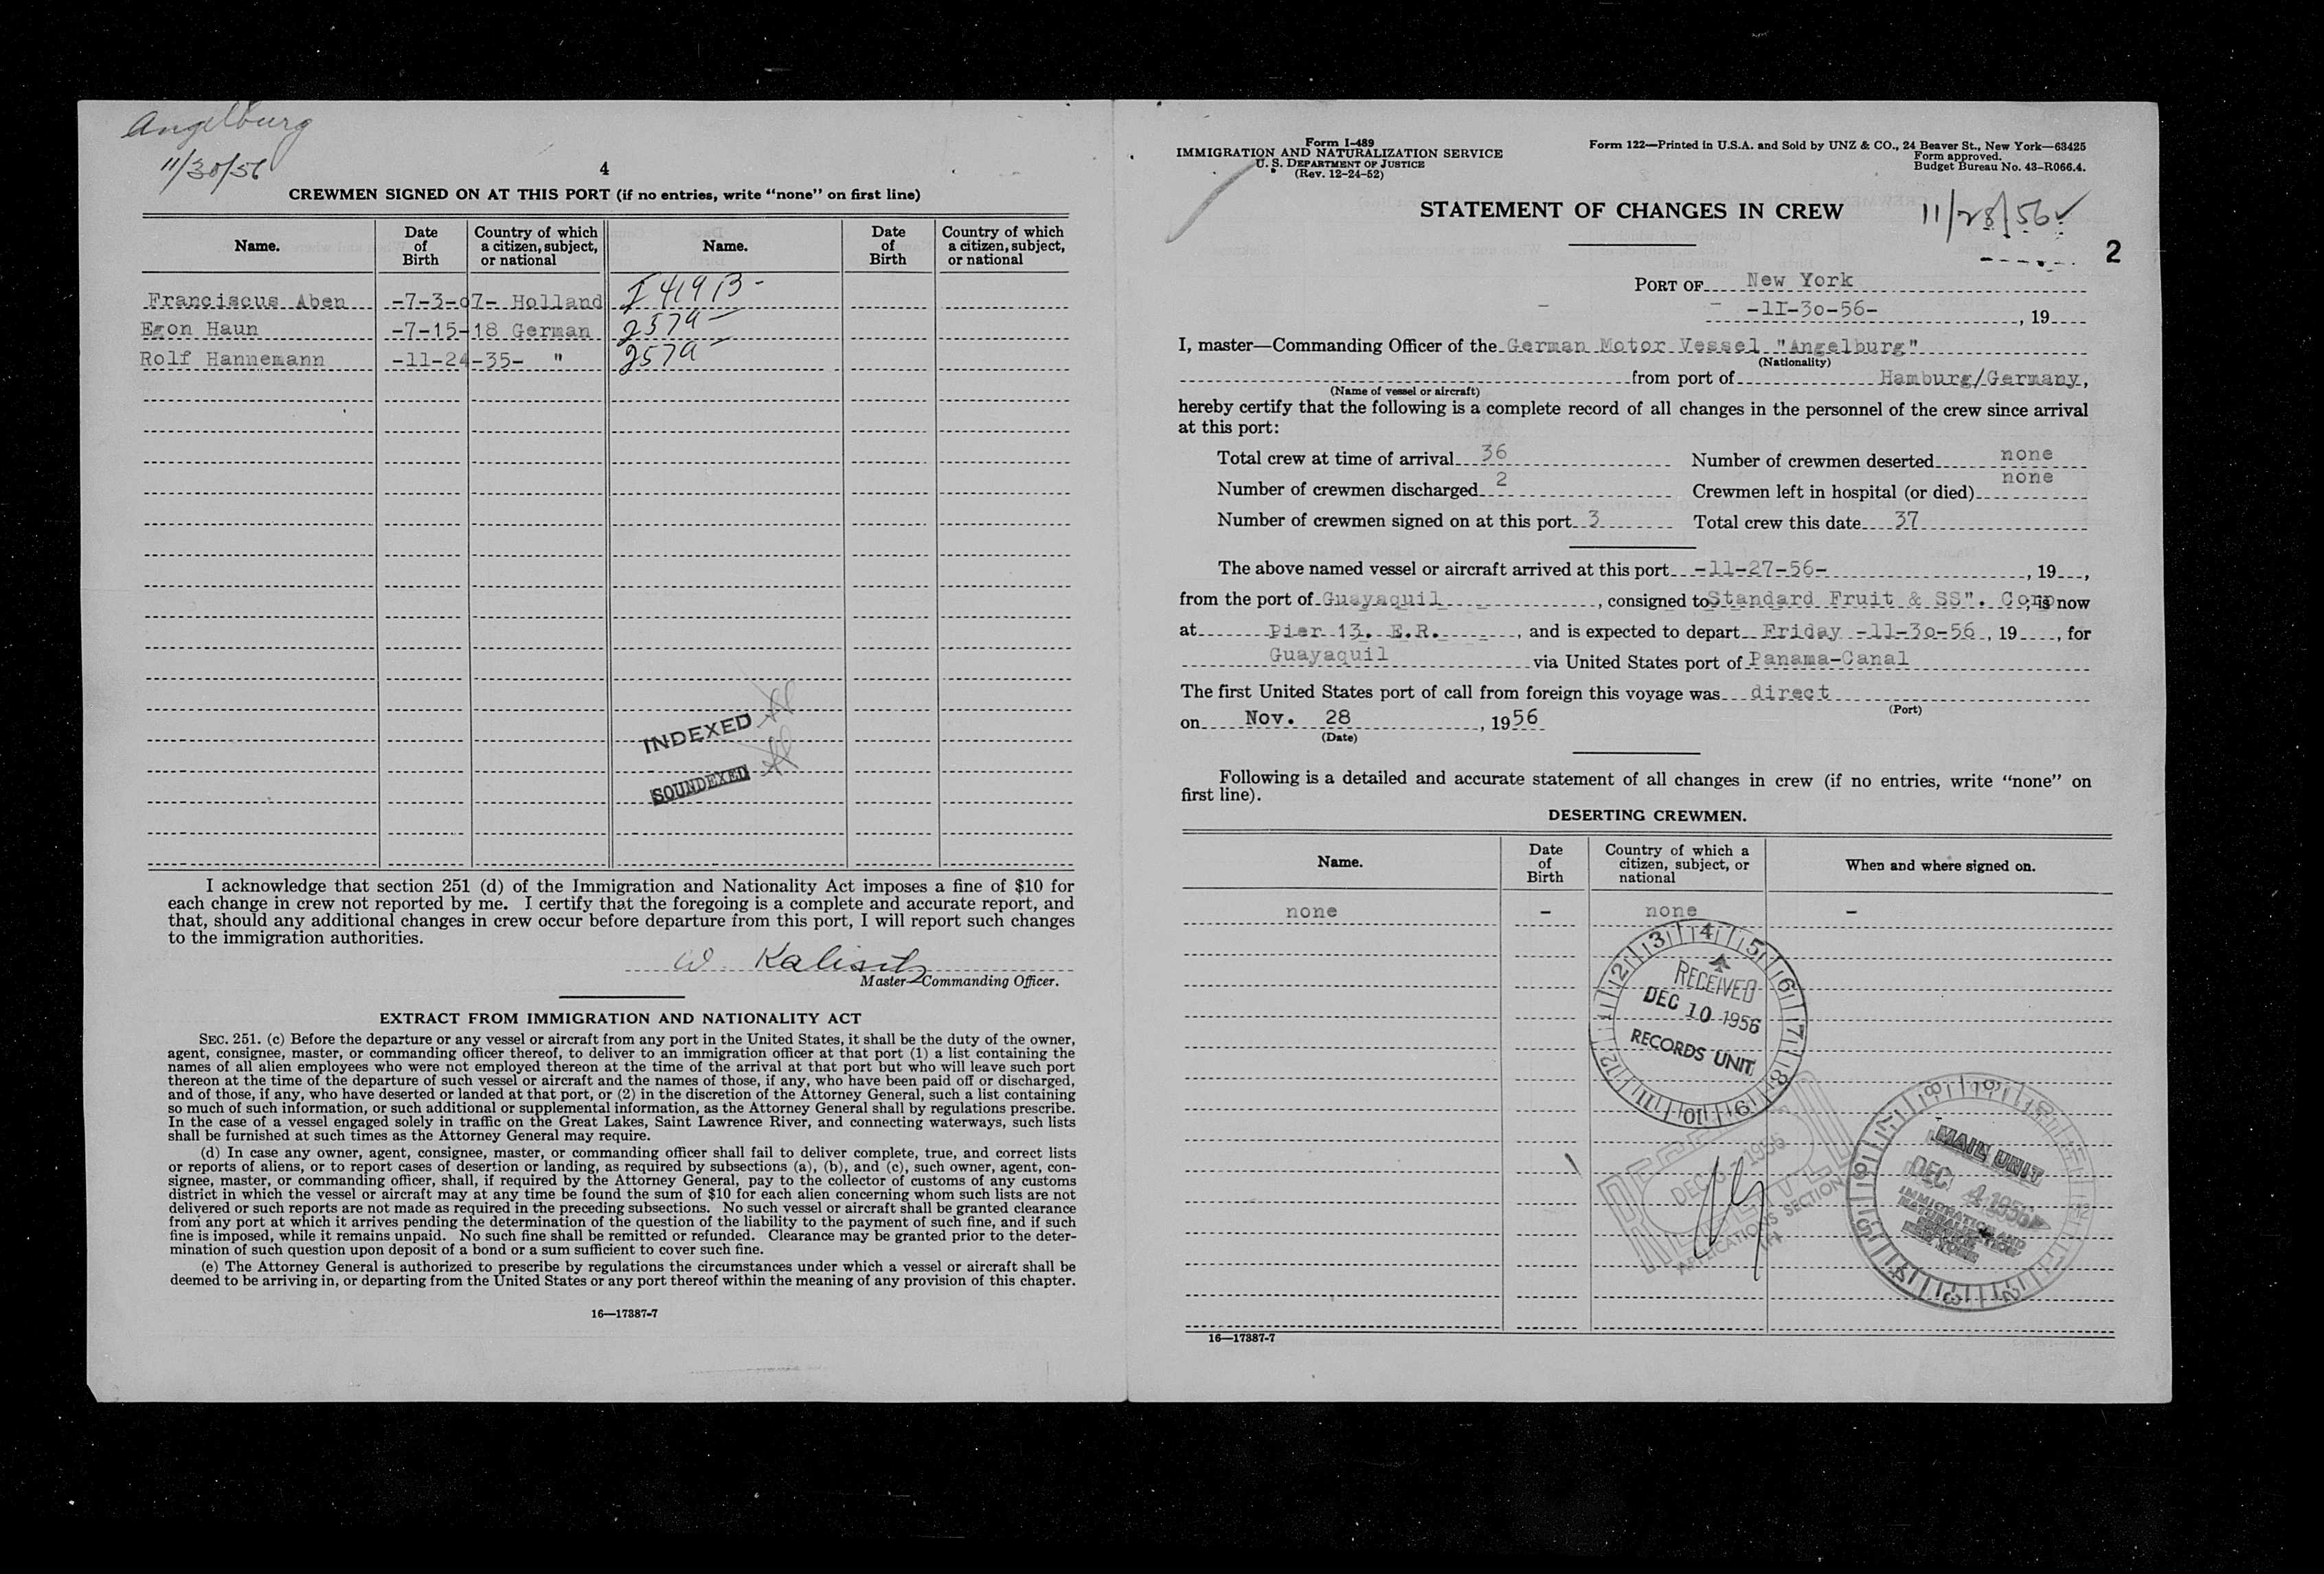 Angelburg
11/30/56
4
CREWMEN SIGNED ON AT THIS PORT (if no entries, write "none" on first line)
Name. Date of Birth Country of which a citizen, subject, or national Name. Date of Birth Country of which a citizen, subject, or national
Franciscus Aben -7-3-07- Holland I 419 B -
Egon Haun -7-15-18 German 257a -
Rolf Hannemann -11-24-35- " 257a -
INDEXED
SOUNDEXED
I acknowledge that section 251 (d) of the Immigration and Nationality Act imposes a fine of $10 for
each change in crew not reported by me. I certify that the foregoing is a complete and accurate report, and
that, should any additional changes in crew occur before departure from this port, I will report such changes
to the immigration authorities.
W. Kalisitz
Master—Commanding Officer.
EXTRACT FROM IMMIGRATION AND NATIONALITY ACT
SEC. 251. (c) Before the departure or any vessel or aircraft from any port in the United States, it shall be the duty of the owner,
agent, consignee, master, or commanding officer thereof, to deliver to an immigration officer at that port (1) a list containing the
names of all alien employees who were not employed thereon at the time of the arrival at that port but who will leave such port
thereon at the time of the departure of such vessel or aircraft and the names of those, if any, who have been paid off or discharged,
and of those, if any, who have deserted or landed at that port, or (2) in the discretion of the Attorney General, such a list containing
so much of such information, or such additional or supplemental information, as the Attorney General shall by regulations prescribe.
In the case of a vessel engaged solely in traffic on the Great Lakes, Saint Lawrence River, and connecting waterways, such lists
shall be furnished at such times as the Attorney General may require.
(d) In case any owner, agent, consignee, master, or commanding officer shall fail to deliver complete, true, and correct lists
or reports of aliens, or to report cases of desertion or landing, as required by subsections (a), (b), and (c), such owner, agent, con-
signee, master, or commanding officer, shall, if required by the Attorney General, pay to the collector of customs of any customs
district in which the vessel or aircraft may at any time be found the sum of $10 for each alien concerning whom such lists are not
delivered or such reports are not made as required in the preceding subsections. No such vessel or aircraft shall be granted clearance
from any port at which it arrives pending the determination of the question of the liability to the payment of such fine, and if such
fine is imposed, while it remains unpaid. No such fine shall be remitted or refunded. Clearance may be granted prior to the deter-
mination of such question upon deposit of a bond or a sum sufficient to cover such fine.
(e) The Attorney General is authorized to prescribe by regulations the circumstances under which a vessel or aircraft shall be
deemed to be arriving in, or departing from the United States or any port thereof within the meaning of any provision of this chapter.
16—17387-7
Form I-489
IMMIGRATION AND NATURALIZATION SERVICE
U. S. DEPARTMENT OF JUSTICE
(Rev. 12-24-52)
Form 122—Printed in U.S.A. and Sold by UNZ & CO., 24 Beaver St., New York—63425
Form approved.
Budget Bureau No. 43-R066.4.
STATEMENT OF CHANGES IN CREW
11/28/56 ✓
2
PORT OF New York
-11-30-56-, 19
I, master—Commanding Officer of the German Motor Vessel "Angelburg"
(Nationality)
from port of Hamburg/Germany,
(Name of vessel or aircraft)
hereby certify that the following is a complete record of all changes in the personnel of the crew since arrival
at this port:
Total crew at time of arrival 36 Number of crewmen deserted none
Number of crewmen discharged 2 Crewmen left in hospital (or died) none
Number of crewmen signed on at this port 3 Total crew this date 37
The above named vessel or aircraft arrived at this port -11-27-56-, 19,
from the port of Guayaquil, consigned to Standard Fruit & SS". Corp, is now
at Pier 13. E.R., and is expected to depart Friday -11-30-56, 19, for
Guayaquil via United States port of Panama-Canal
The first United States port of call from foreign this voyage was direct
(Port)
on Nov. 28, 1956
(Date)
Following is a detailed and accurate statement of all changes in crew (if no entries, write "none" on
first line).
DESERTING CREWMEN.
Name. Date of Birth Country of which a citizen, subject, or national When and where signed on.
none - none -
RECEIVED
DEC 10 1956
RECORDS UNIT
1 2 3 4 5 6 7 8 9 10 11 12
RECEIVED
DEC 6 - 1956
APPLICATIONS SECTION
MAIL UNIT
DEC 4 1956
IMMIGRATION AND
NATURALIZATION
SERVICE
NEW YORK
16—17387-7